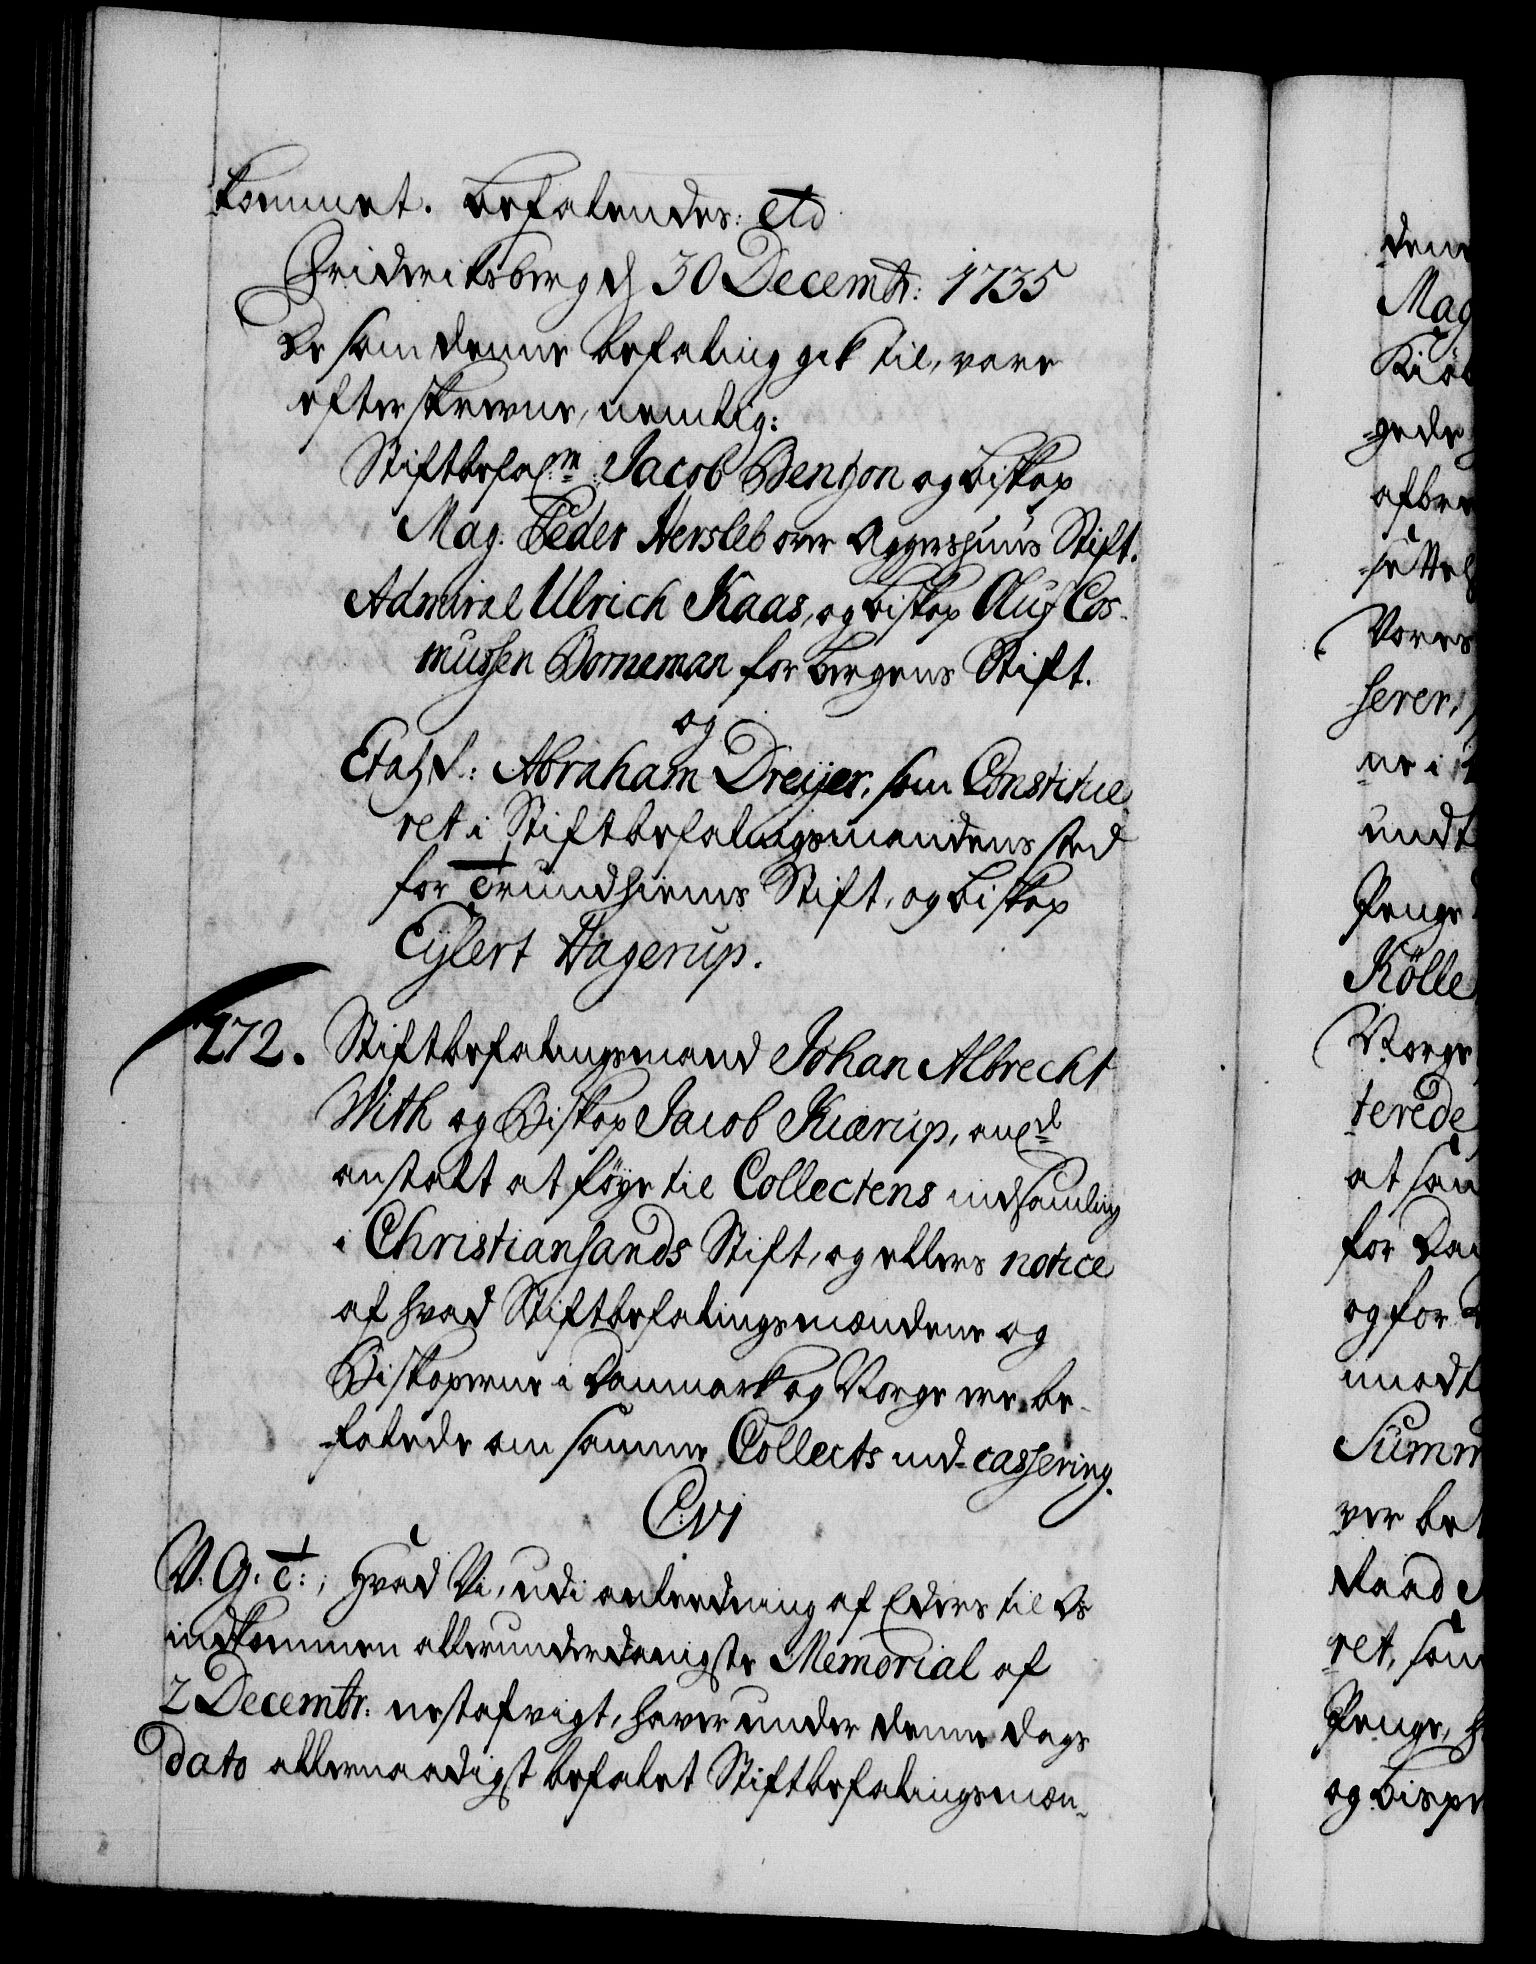 kommet. Befalendes: etc
Friderichsberg d 30 Decembr: 1735
De som denne befaling gik til, vare
efterskrevne, nemlig:
Stiftbefal.m Jacob Benzon og Biskop
Mag. Peder Hersleb over Aggershuus Stift.
Admiral Ulrich Kaas, og Biskop Oluf Cos-
mussen Borneman for Bergens Stift.
og
Etatzr: Abraham Dreyer, som Constitue-
ret i Stiftbefalingsmandens sted
for Trundhiems Stift, og Biskop
Eylert Hagerup.
272. Stiftbefalingsmand Johan Albrecht
With og Biskop Jacob Kiærup, anl
anstalt at föye til Collectens indsamling
i Christiansands Stift, og ellers notice
af hvad Stiftbefalingsmændene og
Biskoperne i Danmark og Norge ere be-
falede om samme Collects ind-cassering.
C VI
V. G. T:, Hvad Vi, udi anledning af Eders til Os
indkommen allerunderdanigste Memorial af
2 Decembr: nestafvigt, haver under denne dags
Dato allernaadigst befalet Stiftbefalingsmæn-